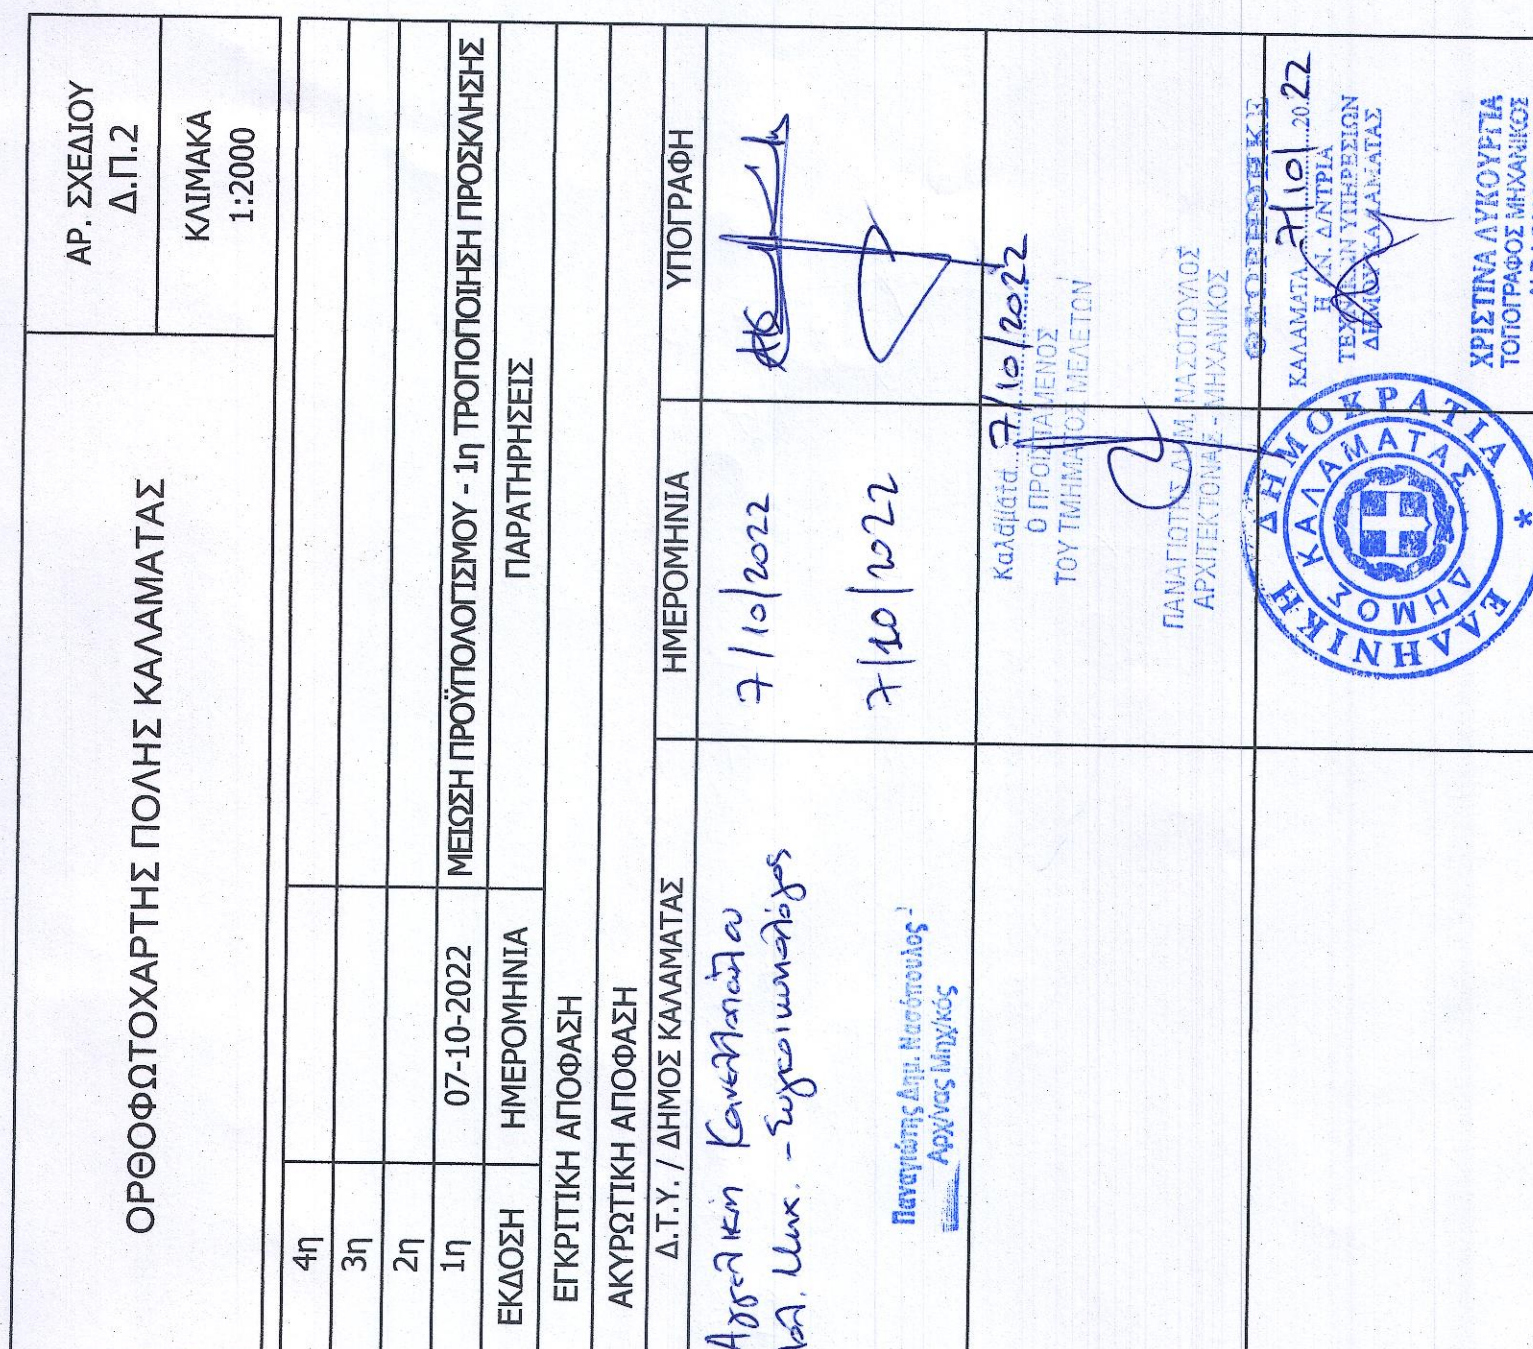 ΟΡΘΟΦΩΤΟΧΑΡΤΗΣ ΠΟΛΗΣ ΚΑΛΑΜΑΤΑΣ
ΑΡ. ΣΧΕΔΙΟΥ
Δ.Π.2
ΚΛΙΜΑΚΑ
1:2000
4η
3η
2η
1η 07-10-2022 ΜΕΙΩΣΗ ΠΡΟΫΠΟΛΟΓΙΣΜΟΥ - 1η ΤΡΟΠΟΠΟΙΗΣΗ ΠΡΟΣΚΛΗΣΗΣ
ΕΚΔΟΣΗ ΗΜΕΡΟΜΗΝΙΑ ΠΑΡΑΤΗΡΗΣΕΙΣ
ΕΓΚΡΙΤΙΚΗ ΑΠΟΦΑΣΗ
ΑΚΥΡΩΤΙΚΗ ΑΠΟΦΑΣΗ
Δ.Τ.Υ. / ΔΗΜΟΣ ΚΑΛΑΜΑΤΑΣ ΗΜΕΡΟΜΗΝΙΑ ΥΠΟΓΡΑΦΗ
Αγγελική Κανελλοπούλου 7/10/2022
Πολ. Μηχ. - Συγκοινωνιολόγος
7/10/2022
Παναγιώτης Δημ. Νασόπουλος
Αρχ/νας Μηχ/κός
Καλαμάτα 7/10/2022
Ο ΠΡΟΪΣΤΑΜΕΝΟΣ
ΤΟΥ ΤΜΗΜΑΤΟΣ ΜΕΛΕΤΩΝ
ΠΑΝΑΓΙΩΤΗΣ ΔΗΜ. ΝΑΣΟΠΟΥΛΟΣ
ΑΡΧΙΤΕΚΤΟΝΑΣ - ΜΗΧΑΝΙΚΟΣ
ΘΕΩΡΗΘΗΚΕ
ΚΑΛΑΜΑΤΑ 7/10/2022
Η ΑΝ. Δ/ΝΤΡΙΑ
ΤΕΧΝΙΚΩΝ ΥΠΗΡΕΣΙΩΝ
ΔΗΜΟΥ ΚΑΛΑΜΑΤΑΣ
ΧΡΙΣΤΙΝΑ ΛΥΚΟΥΡΓΙΑ
ΤΟΠΟΓΡΑΦΟΣ ΜΗΧΑΝΙΚΟΣ
ΕΛΛΗΝΙΚΗ ΔΗΜΟΚΡΑΤΙΑ *
ΔΗΜΟΣ ΚΑΛΑΜΑΤΑΣ